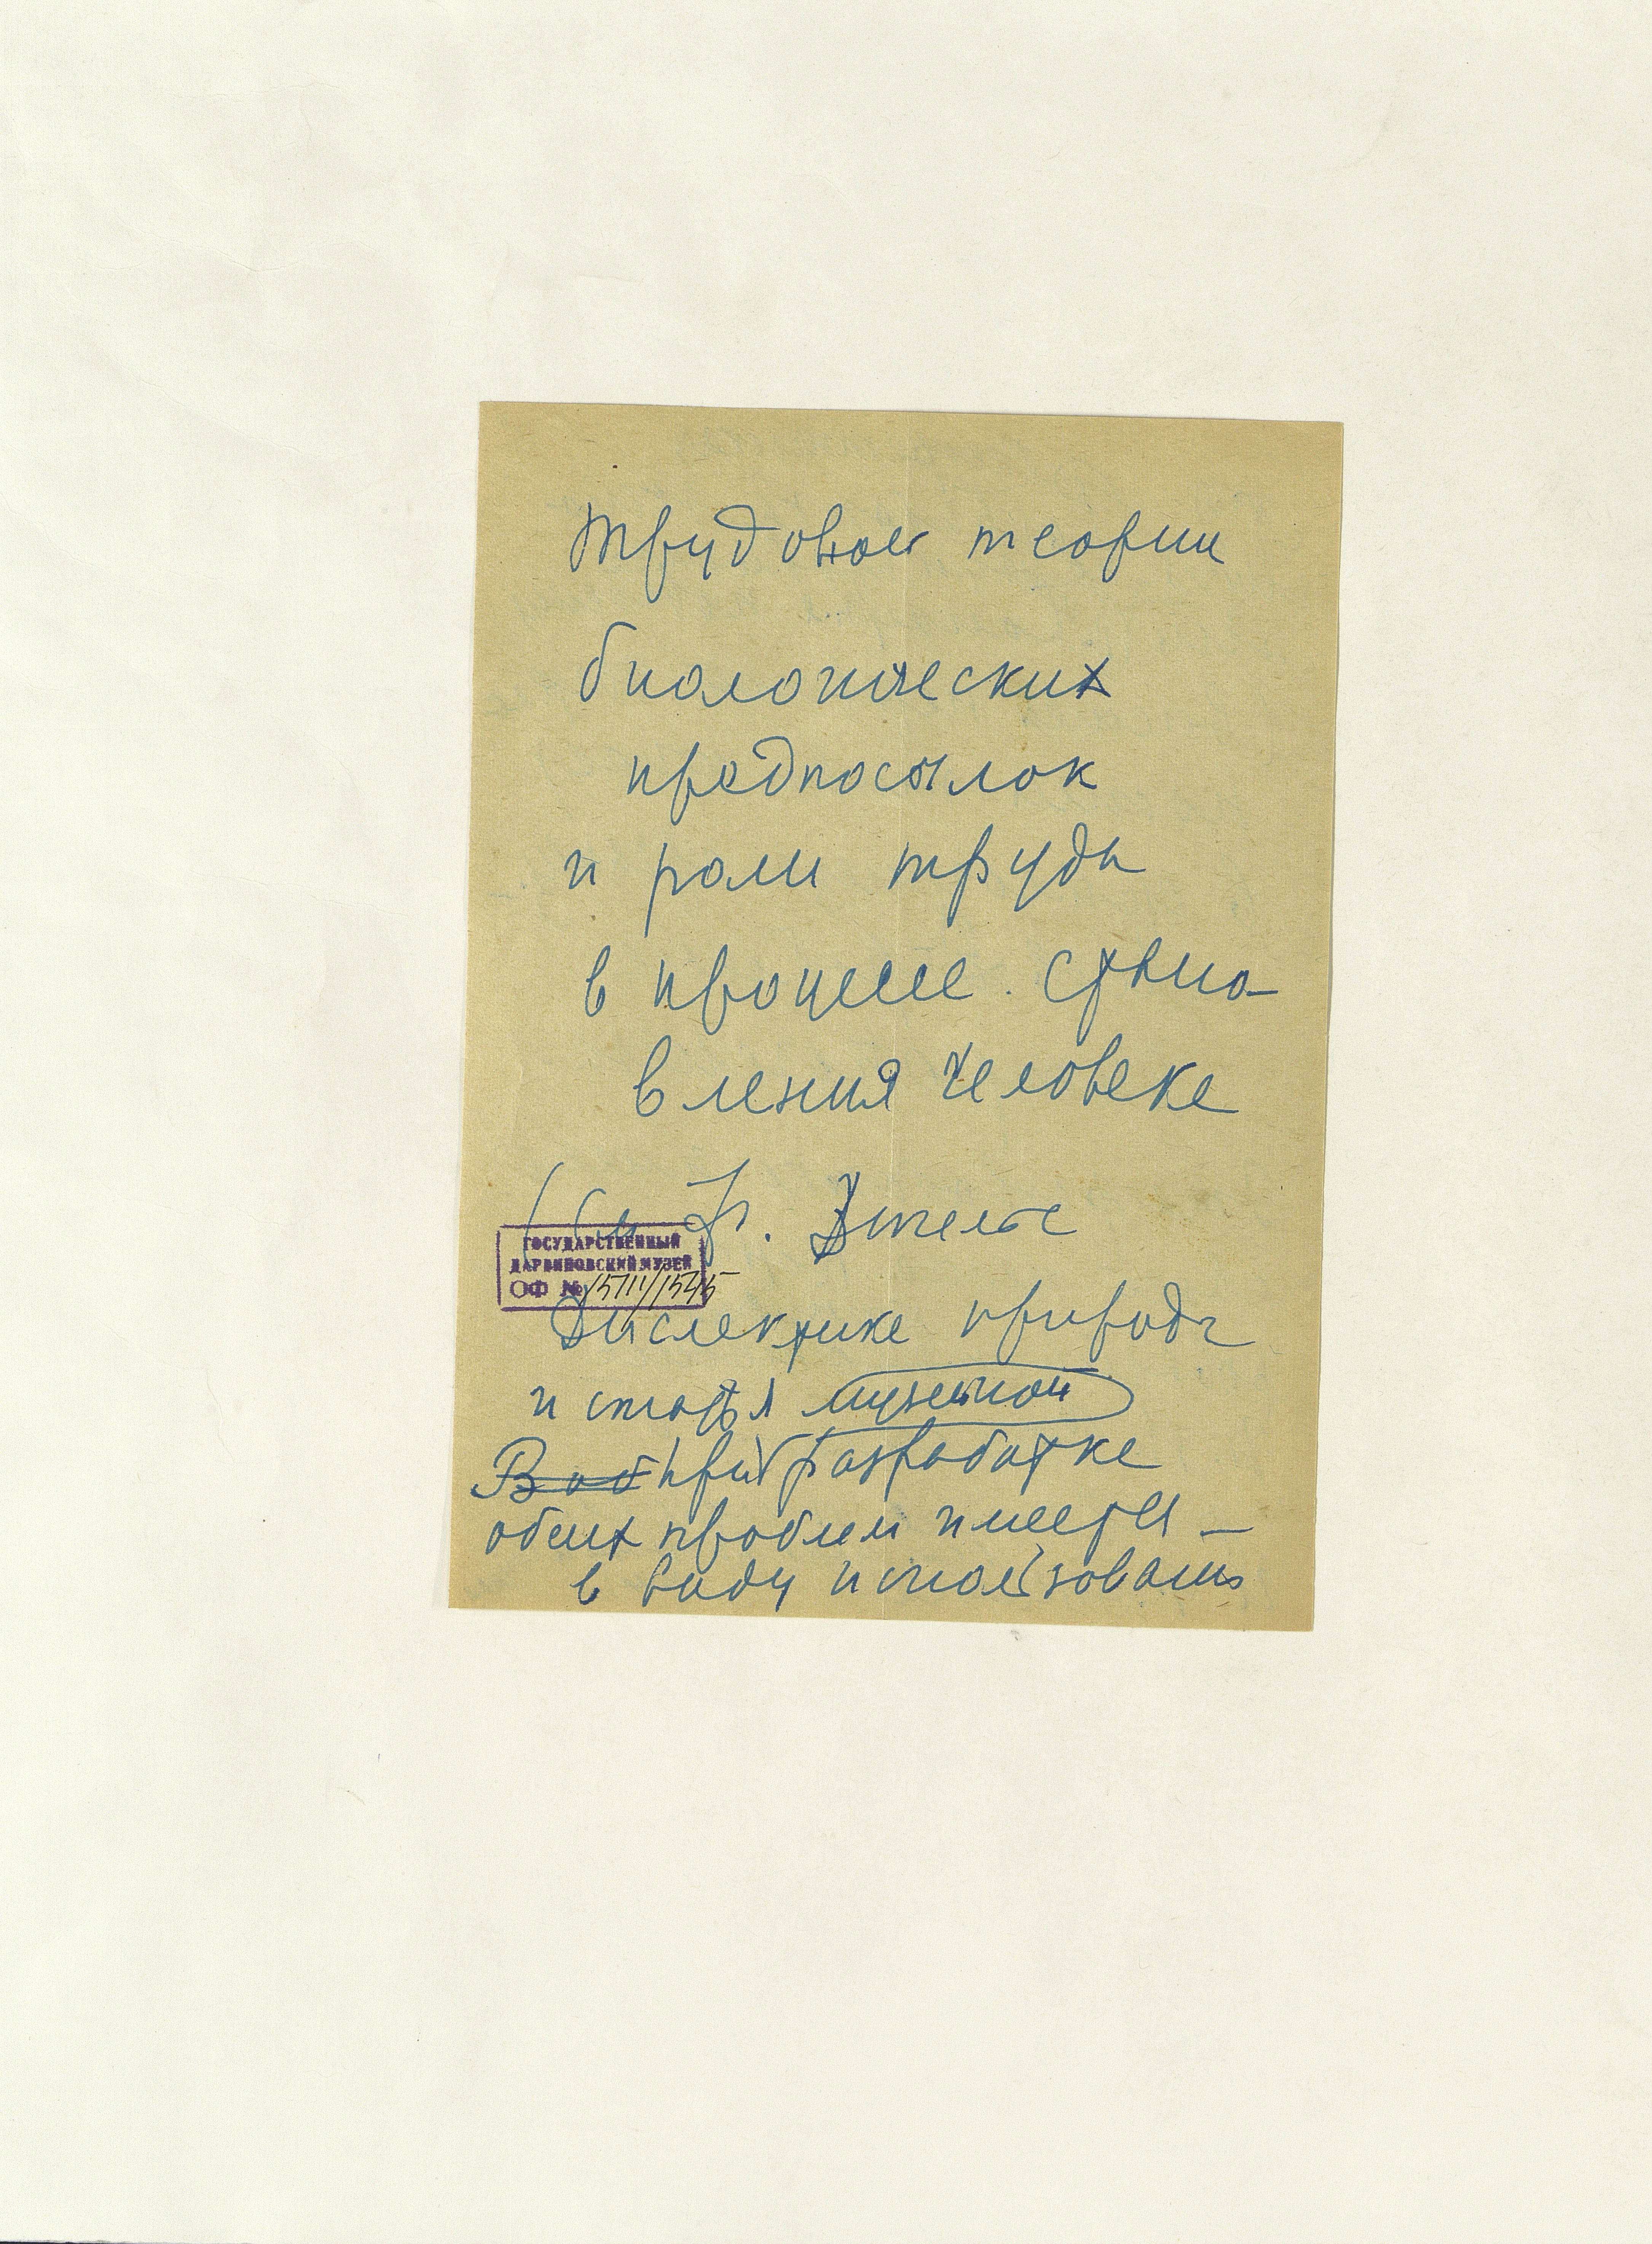 трудовой теории
биологических
предпосылок
и роли труда
в процессе стано-
вления человека
(см Ф. Энгельс
ГОСУДАРСТВЕННЫЙ
ДАРВИНОВСКИЙ МУЗЕЙ
ОФ № 15711/1545
Диалектика природы
и статья музейной
В об при разработке
обеих проблем имеется
в виду использовать